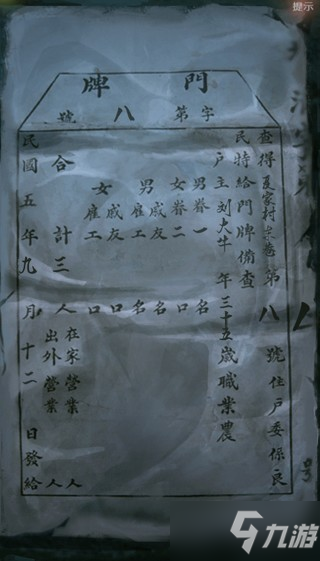 提示
門牌
字第八號
查得夏家村巷第八號住戶委係良
民特給門牌備查
戶主刘大牛年三十五歲職業農
男眷一名
女眷二口
男
戚友名
雇工名
女
戚友口
雇工口
合計三人
在家營業人
出外營業人
民國五年九月十二日發給
號
九游